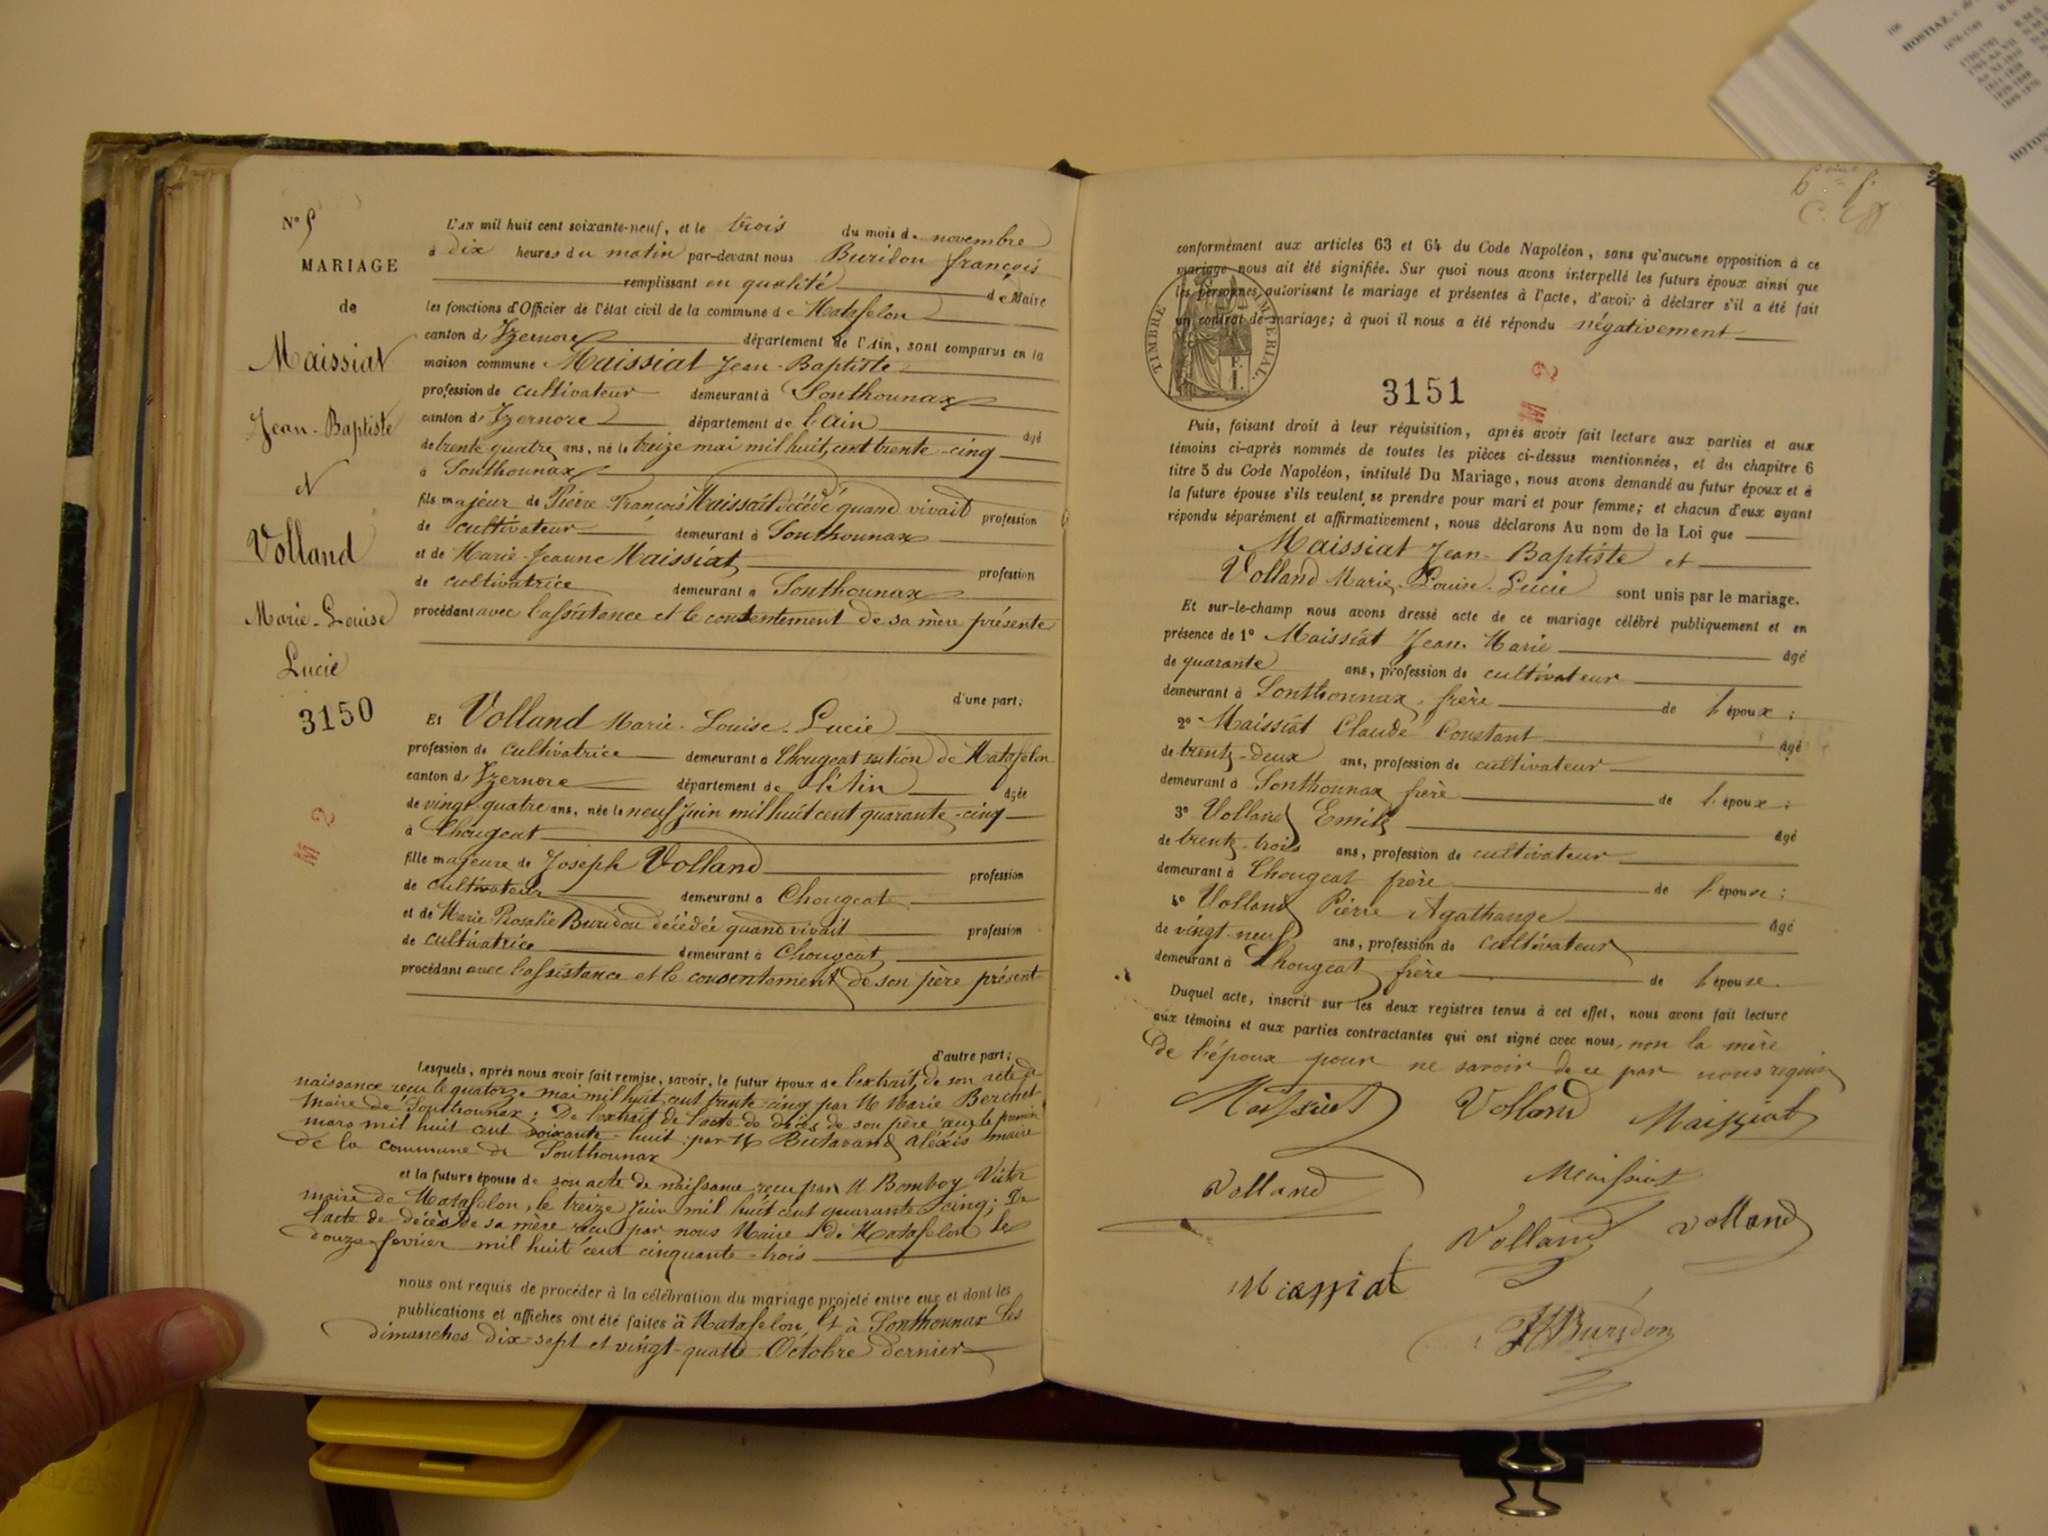 N° 5
MARIAGE
de
Maissiat
Jean-Baptiste
et
Volland
Marie-Louise
Lucie
3150
M 2
L'AN mil huit cent soixante-neuf, et le trois du mois de novembre
à dix heures du matin par-devant nous Buridon françois
remplissant en qualité de Maire
les fonctions d'Officier de l'état civil de la commune de Matafelon
canton d'Izernore département de l'Ain, sont comparus en la
maison commune Maissiat Jean-Baptiste
profession de cultivateur demeurant à Sonthounax
canton d'Izernore département de l'ain âgé
de trente quatre ans, né le treize mai mil huit cent trente-cinq
à Sonthounax
fils majeur de Pierre François Maissiat décédé quand vivait profession
de cultivateur demeurant à Sonthounax
et de Marie-Jeanne Maissiat profession
de cultivatrice demeurant à Sonthounax
procédant avec l'assistance et le consentement de sa mère présente
d'une part;
Et Volland Marie-Louise-Lucie
profession de cultivatrice demeurant à Chougeat section de Matafelon
canton d'Izernore département de l'Ain âgée
de vingt-quatre ans, née le neuf juin mil huit cent quarante-cinq
à Chougeat
fille majeure de Joseph Volland profession
de cultivateur demeurant à Chougeat
et de Marie Rosalie Buridon décédée quand vivait profession
de cultivatrice demeurant à Chougeat
procédant avec l'assistance et le consentement de son père présent
d'autre part;
Lesquels, après nous avoir fait remise, savoir, le futur époux de l'extrait de son acte de
naissance reçu le quatorze mai mil huit cent trente-cinq par M Marie Berchet
maire de Sonthounax; De l'extrait de l'acte de décès de son père reçu le premier
mars mil huit cent soixante-huit par M Butavand aléxis maire
de la commune de Sonthounax
et la future épouse de son acte de naissance reçu par M Bomboy Victor
maire de Matafelon, le treize juin mil huit cent quarante cinq; De
l'acte de décès de sa mère reçu par nous Maire de Matafelon le
douze fevrier mil huit cent cinquante-trois
nous ont requis de procéder à la célébration du mariage projeté entre eux et dont les
publications et affiches ont été faites à Matafelon et à Sonthounax les
dimanches dix-sept et vingt-quatre Octobre dernier
conformément aux articles 63 et 64 du Code Napoléon, sans qu'aucune opposition à ce
mariage nous ait été signifiée. Sur quoi nous avons interpellé les futurs époux ainsi que
les personnes autorisant le mariage et présentes à l'acte, d'avoir à déclarer s'il a été fait
un contrat de mariage; à quoi il nous a été répondu négativement
TIMBRE IMPÉRIAL
3151
M 2
Puis, faisant droit à leur réquisition, après avoir fait lecture aux parties et aux
témoins ci-après nommés de toutes les pièces ci-dessus mentionnées, et du chapitre 6
titre 5 du Code Napoléon, intitulé Du Mariage, nous avons demandé au futur époux et à
la future épouse s'ils veulent se prendre pour mari et pour femme; et chacun d'eux ayant
répondu séparément et affirmativement, nous déclarons Au nom de la Loi que
Maissiat Jean-Baptiste et
Volland Marie-Louise-Lucie sont unis par le mariage.
Et sur-le-champ nous avons dressé acte de ce mariage célébré publiquement et en
présence de 1° Maissiat Jean Marie âgé
de quarante ans, profession de cultivateur
demeurant à Sonthonnax, frère de l'époux;
2° Maissiat Claude Constant âgé
de trente-deux ans, profession de cultivateur
demeurant à Sonthounax frère de l'époux;
3° Volland Emile âgé
de trente-trois ans, profession de cultivateur
demeurant à Chougeat frère de l'épouse;
4° Volland Pierre Agathange âgé
de vingt-neuf ans, profession de cultivateur
demeurant à Chougeat frère de l'épouse.
Duquel acte, inscrit sur les deux registres tenus à cet effet, nous avons fait lecture
aux témoins et aux parties contractantes qui ont signé avec nous, non la mère
De l'époux pour ne savoir de ce par nous requise
Maissiat Volland Maissiat
Volland Maissiat
Volland Volland
Maissiat
Buridon
HOSTIAZ